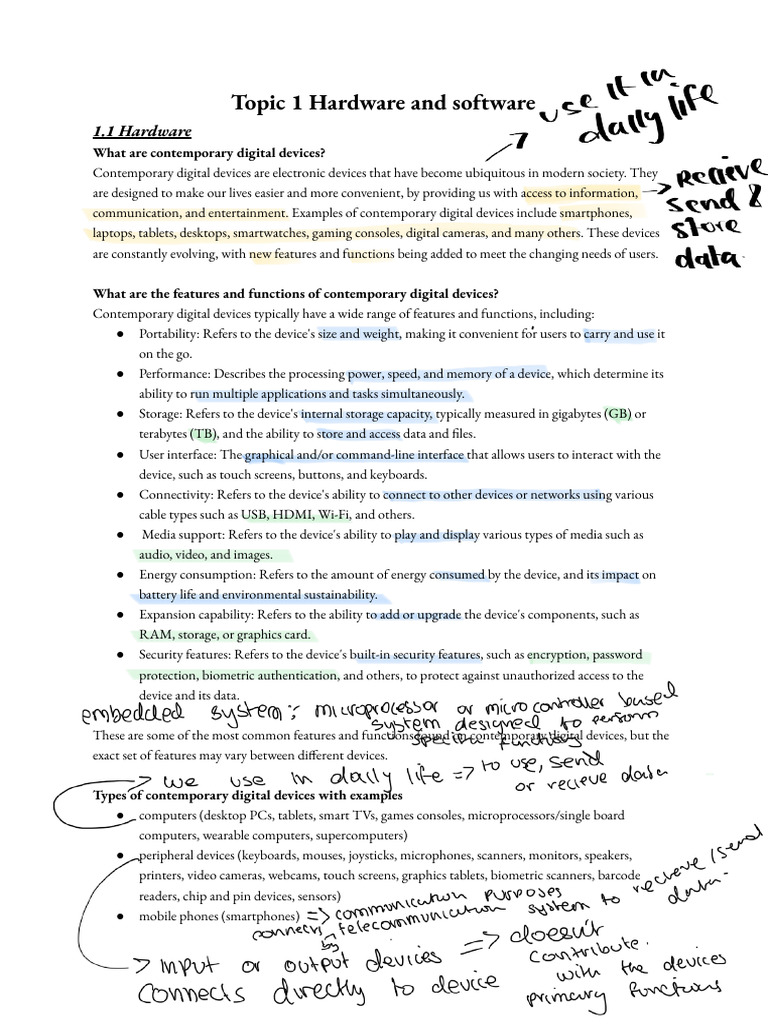 Topic 1 Hardware and software
use it in
daily life
1.1 Hardware
What are contemporary digital devices?
Contemporary digital devices are electronic devices that have become ubiquitous in modern society. They
are designed to make our lives easier and more convenient, by providing us with access to information,
communication, and entertainment. Examples of contemporary digital devices include smartphones,
laptops, tablets, desktops, smartwatches, gaming consoles, digital cameras, and many others. These devices
are constantly evolving, with new features and functions being added to meet the changing needs of users.
recieve
send &
store
data.
What are the features and functions of contemporary digital devices?
Contemporary digital devices typically have a wide range of features and functions, including:
● Portability: Refers to the device's size and weight, making it convenient for users to carry and use it
on the go.
● Performance: Describes the processing power, speed, and memory of a device, which determine its
ability to run multiple applications and tasks simultaneously.
● Storage: Refers to the device's internal storage capacity, typically measured in gigabytes (GB) or
terabytes (TB), and the ability to store and access data and files.
● User interface: The graphical and/or command-line interface that allows users to interact with the
device, such as touch screens, buttons, and keyboards.
● Connectivity: Refers to the device's ability to connect to other devices or networks using various
cable types such as USB, HDMI, Wi-Fi, and others.
● Media support: Refers to the device's ability to play and display various types of media such as
audio, video, and images.
● Energy consumption: Refers to the amount of energy consumed by the device, and its impact on
battery life and environmental sustainability.
● Expansion capability: Refers to the ability to add or upgrade the device's components, such as
RAM, storage, or graphics card.
● Security features: Refers to the device's built-in security features, such as encryption, password
protection, biometric authentication, and others, to protect against unauthorized access to the
device and its data.
embedded system: microprocessor or microcontroller based
system designed to perform
specific functions
These are some of the most common features and functions found in contemporary digital devices, but the
exact set of features may vary between different devices.
→ we use in daily life => to use, send
or recieve data
Types of contemporary digital devices with examples
● computers (desktop PCs, tablets, smart TVs, games consoles, microprocessors/single board
computers, wearable computers, supercomputers)
● peripheral devices (keyboards, mouses, joysticks, microphones, scanners, monitors, speakers,
printers, video cameras, webcams, touch screens, graphics tablets, biometric scanners, barcode
readers, chip and pin devices, sensors)
● mobile phones (smartphones) => communication purposes
connects by telecommunication system to recieve/send
data.
→ input or output devices => doesn't
connects directly to device
contribute.
with the devices
primary functions